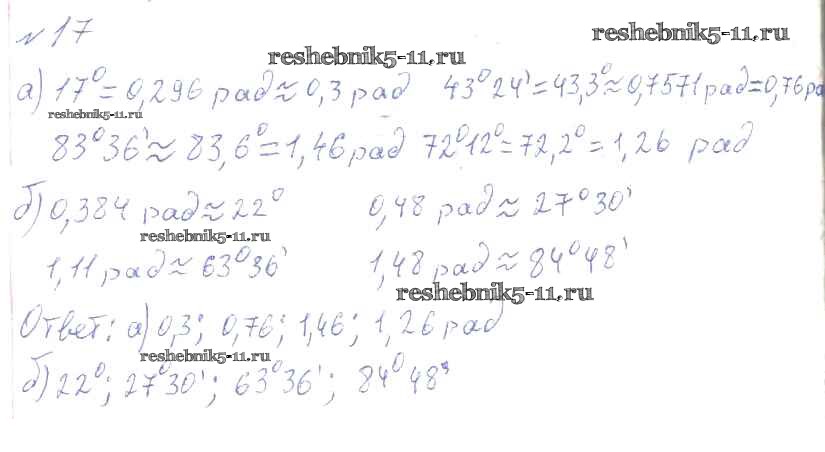 № 17
reshebnik5-11.ru
reshebnik5-11.ru
а) 17⁰ = 0,296 рад ≈ 0,3 рад 43⁰24' = 43,3⁰ ≈ 0,7571 рад = 0,76 ра
reshebnik5-11.ru
83⁰36' ≈ 83,6⁰ = 1,46 рад 72⁰12⁰ = 72,2⁰ = 1,26 рад
б) 0,384 рад ≈ 22⁰ 0,48 рад ≈ 27⁰30'
reshebnik5-11.ru
1,11 рад ≈ 63⁰36' 1,48 рад ≈ 84⁰48'
reshebnik5-11.ru
Ответ: а) 0,3; 0,76; 1,46; 1,26 рад
reshebnik5-11.ru
б) 22⁰; 27⁰30'; 63⁰36'; 84⁰48'